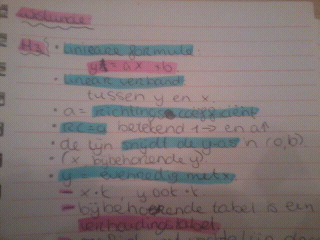 wiskunde
H1 • lineaire formule
y = ax + b
• lineair verband
tussen y en x.
• a = richtingscoëfficiënt
• betekend 1 → en a↑
• de lijn snijdt de y-as n (0,b)
• (x, bijbehorende y)
• y = evenredig met x
- x·t, y ook·t
- bijbehorende tabel is een
verhoudingstabel